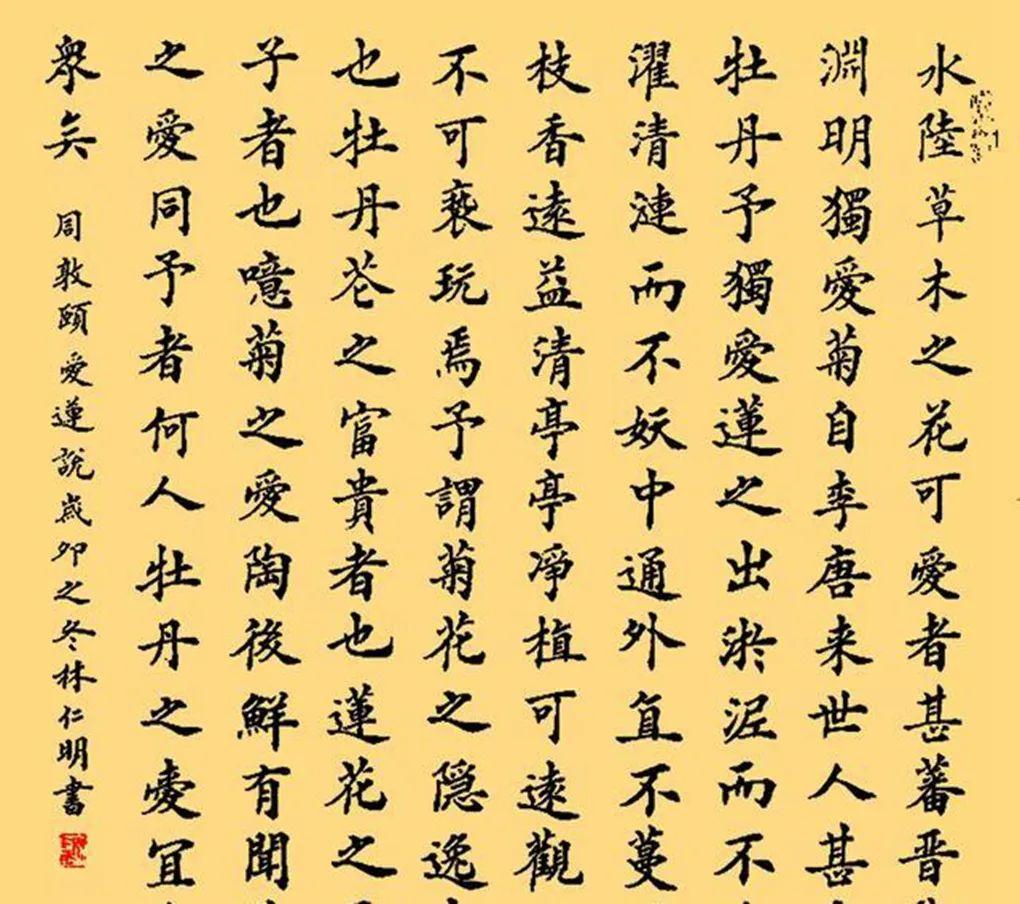 水陸草木之花可愛者甚蕃晉
淵明獨愛菊自李唐来世人甚
牡丹予獨愛蓮之出淤泥而不
濯清漣而不妖中通外直不蔓
枝香遠益清亭亭凈植可遠觀
不可褻玩焉予謂菊花之隠逸
也牡丹花之富貴者也蓮花之
子者也噫菊之愛陶後鮮有聞
之愛同予者何人牡丹之愛宜
衆矣 周敦頤愛蓮說歲卯之冬林仁明書